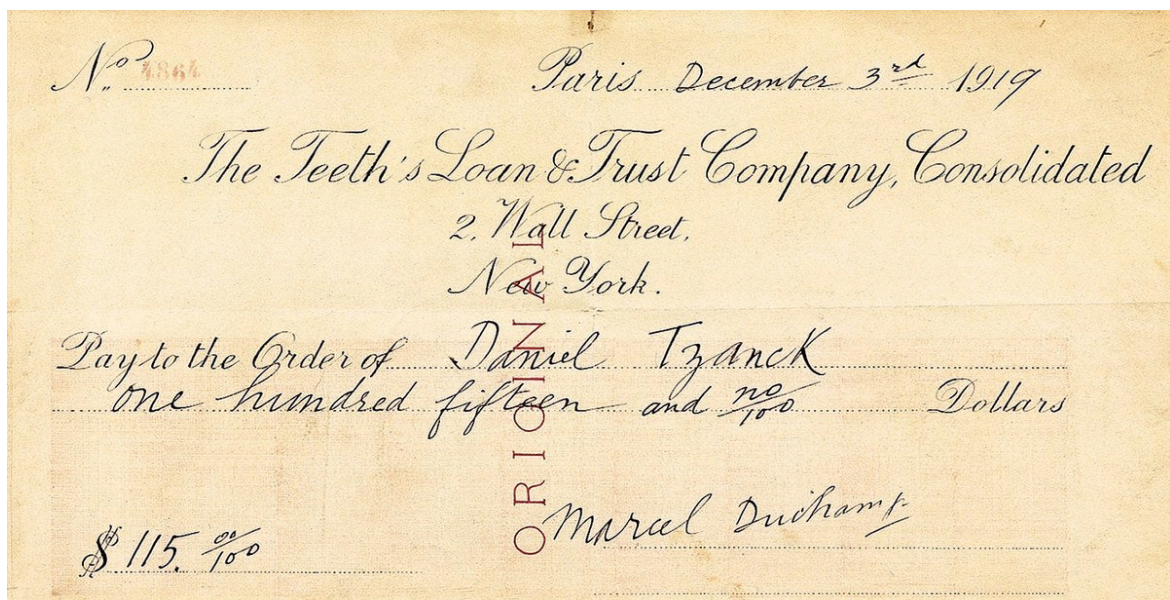 No. 4864 Paris December 3rd 1919
The Teeth's Loan & Trust Company, Consolidated
2, Wall Street,
New York.
Pay to the Order of Daniel Tzanck
one hundred fifteen and no/100 Dollars
ORIGINAL
Marcel Duchamp
$ 115. 00/100